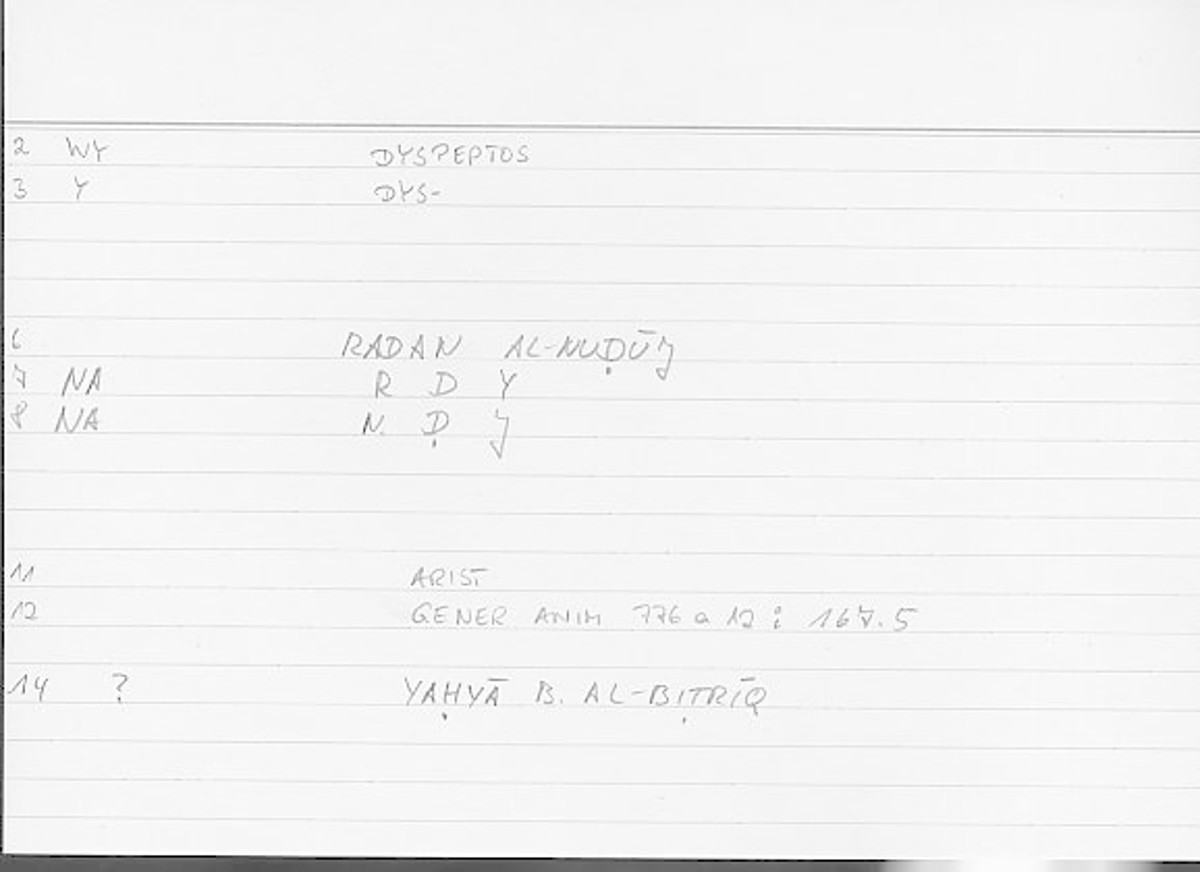 2 WY DYSPEPTOS
3 Y DYS-
6 RADAN AL-NUḌŪJ
7 NA R D Y
8 NA N. Ḍ J
11 ARIST
12 GENER ANIM 776 a 12 : 167.5
14 ? YAḤYĀ B. AL-BIṬRĪQ